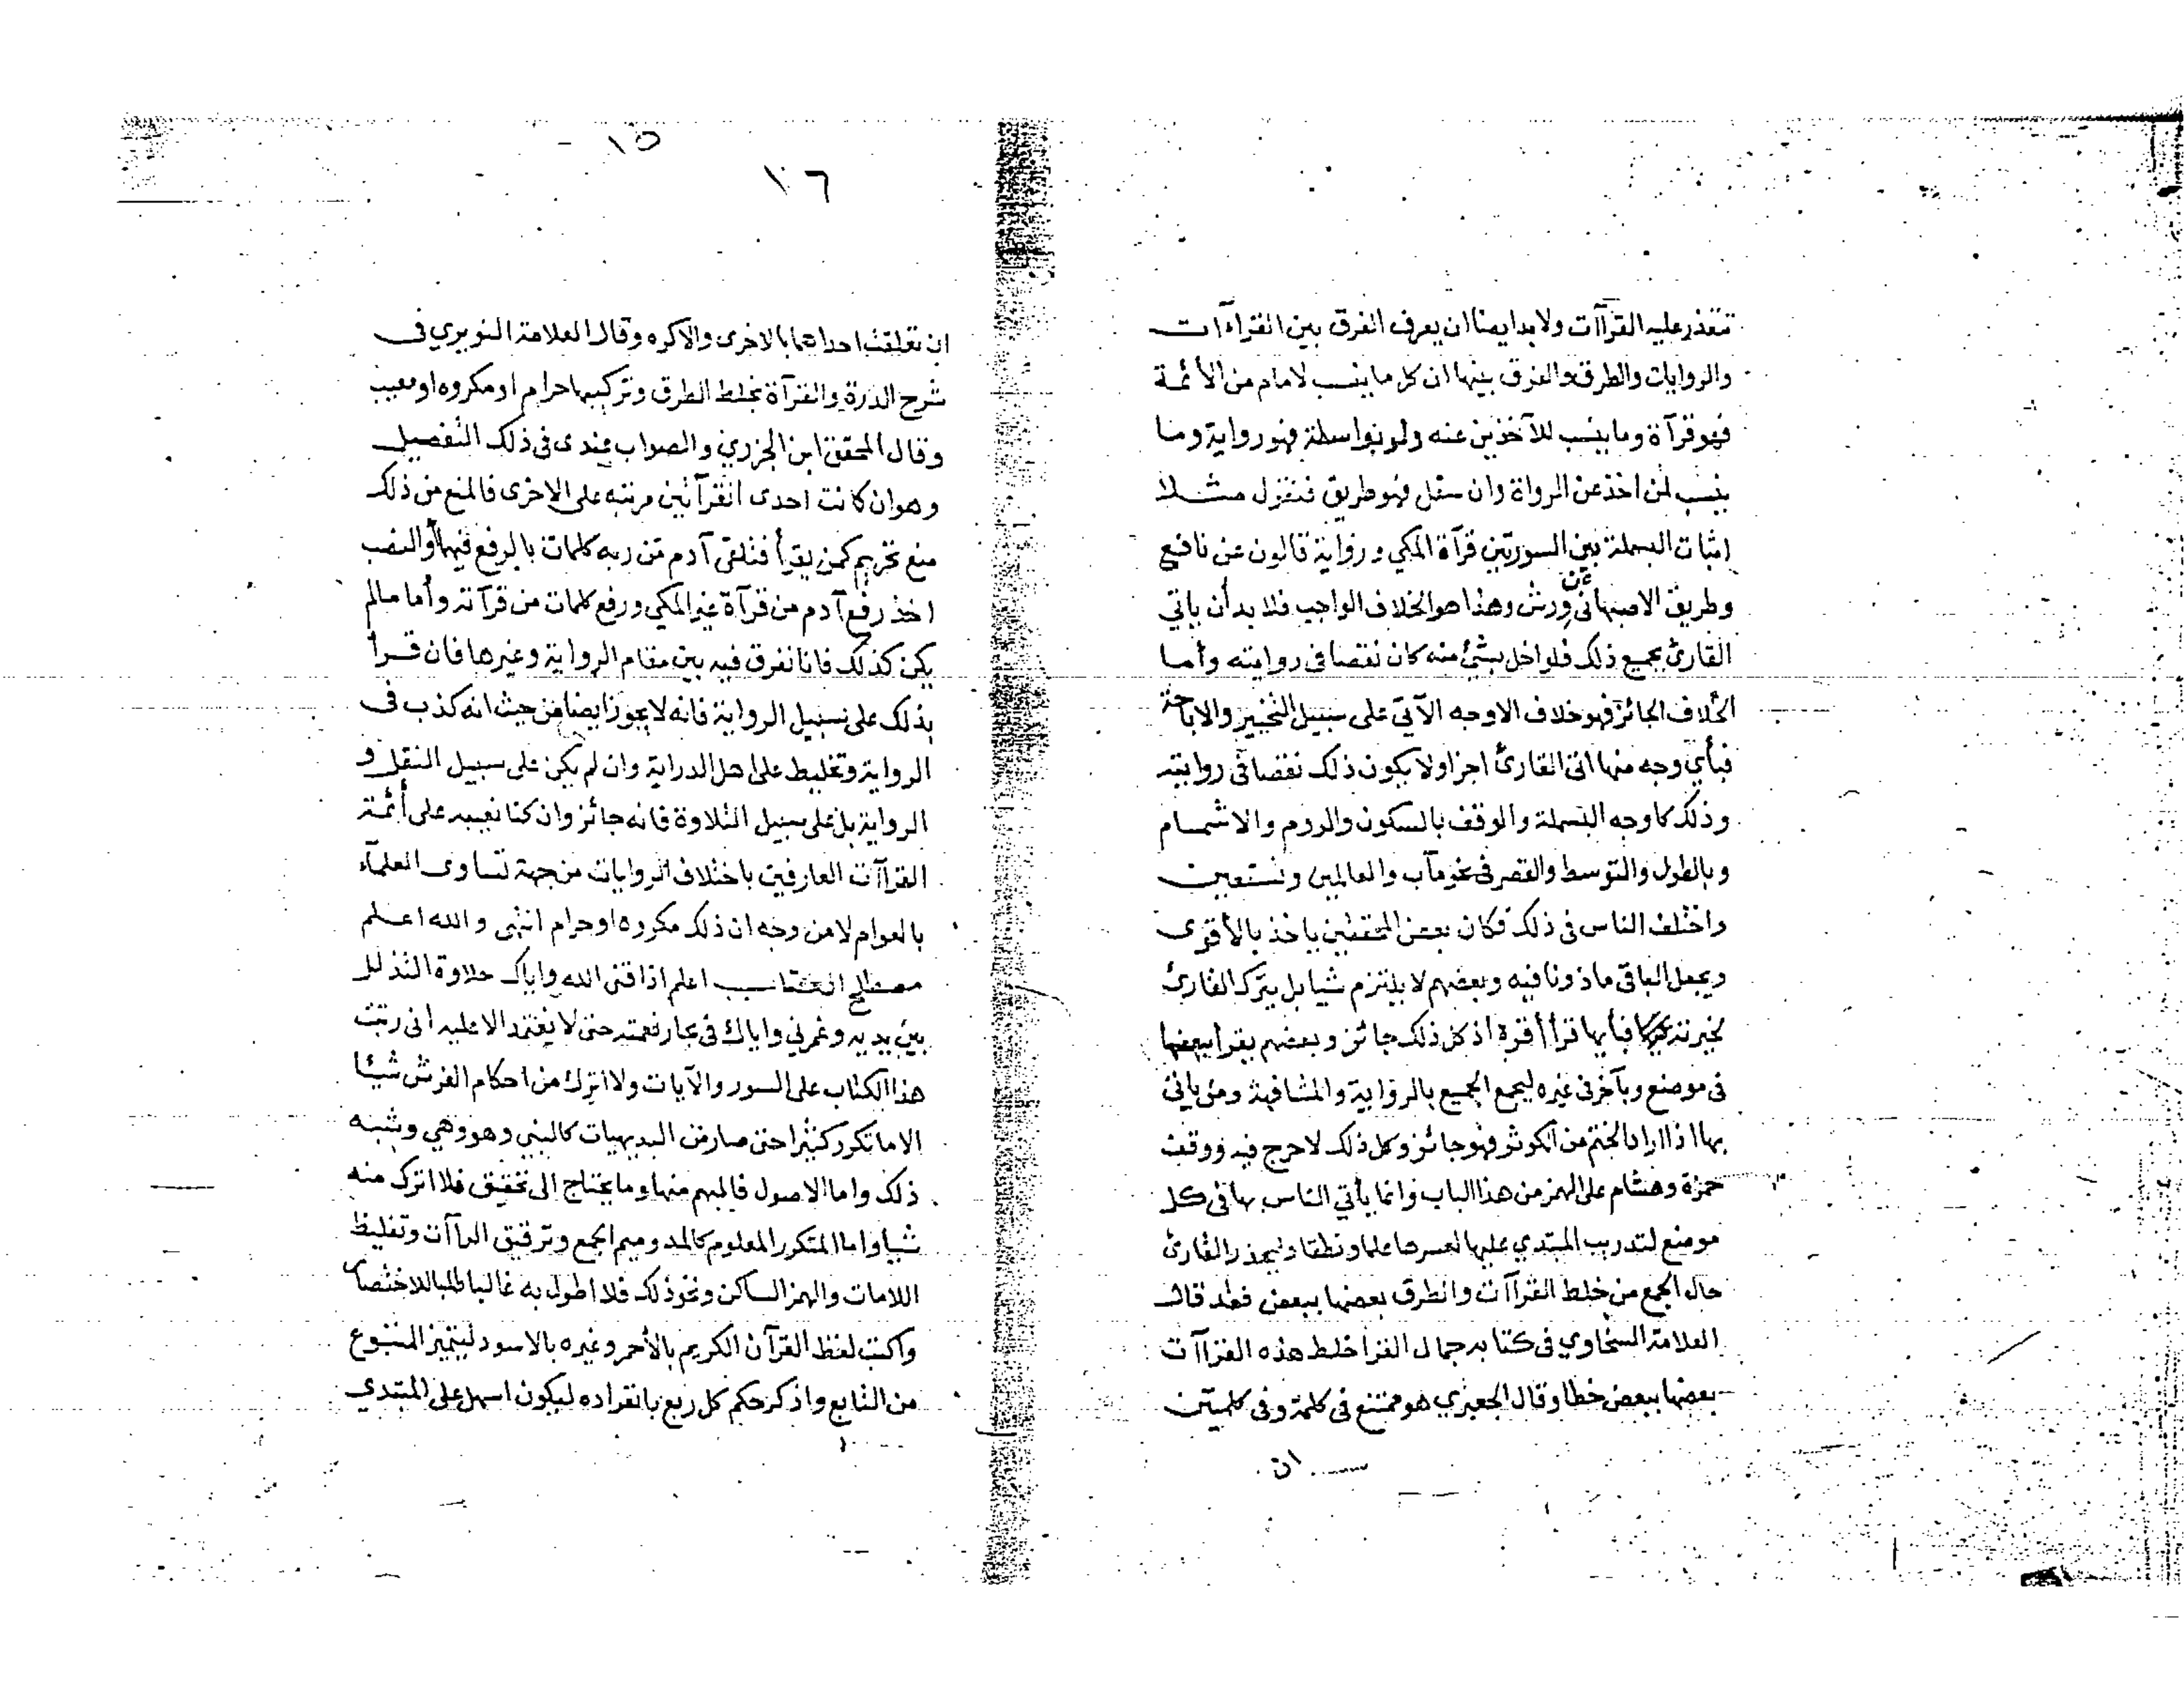 تتعذر عليه القراآت ولا بد ايضا ان يعرف الفرق بين القراءات
والروايات والطرق والفرق بينها ان كل ما ينسب لامام من الأئمة
فهو قرآة وما ينسب للآخذين عنه ولو بواسطة فهو رواية وما
ينسب لمن اخذ عن الرواة وان سفل فهو طريق فتقول مثلا
اثبات البسملة بين السورتين قرآة المكي ورواية قالون عن نافع
وطريق الاصبهانى عن ورش وهذا هو الخلاف الواجب فلا بد أن ياتي
القارئ بجميع ذلك فلو اخل بشئ منه كان نقصا فى روايته وأما
الخلاف الجائز فهو خلاف الاوجه الآتي على سبيل التخيير والاباحة
فبأي وجه منها اتى القارئ اجزا ولا يكون ذلك نقصا فى روايته
وذلك كاوجه البسملة والوقف بالسكون والروم والاشمام
وبالطول والتوسط والقصر فى نحو مآب والعالمين ونستعين
واختلف الناس فى ذلك فكان بعض المحققين ياخذ بالأقوى
ويجعل الباقى ماذونا فيه وبعضهم لا يلتزم شيا بل يترك القارئ
لخيرته فبأيها قرأ أقره اذ كل ذلك جائز وبعضهم يقرأ ببعضها
فى موضع وبآخر فى غيره ليجمع الجميع بالرواية والمشافهة ومن ياتى
بها اذا اراد الختم من الكوثر فهو جائز وكل ذلك لا حرج فيه ووقف
حمزة وهشام على الهمز من هذا الباب وانما يأتي الناس بها فى كل
موضع لتدريب المبتدي عليها لعسرها علما ونطقا وليحذر القارئ
حال الجمع من خلط القراآت والطرق بعضها ببعض فقد قال
العلامة السخاوي فى كتابه جمال القرا خلط هذه القراآت
بعضها ببعض خطا وقال الجعبري هو ممتنع فى كلمة وفى كلمتين
ان
١٥
١٦
ان تعلقت احداهما بالاخرى والا كره وقال العلامة النويري فى
شرح الدرة والقرآة بخلط الطرق وتركيبها حرام او مكروه او معيب
وقال المحقق ابن الجزري والصواب عندى فى ذلك التفصيل
وهو ان كانت احدى القرآتين مرتبه على الاخرى فالمنع من ذلك
منع تحريم كمن يقرأ فتلقى آدم من ربه كلمات بالرفع فيهما أو النصب
اخذ رفع آدم من قرآة غير المكي ورفع كلمات من قرآته وأما ما لم
يكن كذلك فانا نفرق فيه بين مقام الرواية وغيرها فان قرأ
بذلك على سبيل الرواية فانه لا يجوز ايضا من حيث انه كذب فى
الرواية وتخليط على اهل الدراية وان لم يكن على سبيل النقل و
الرواية بل على سبيل التلاوة فانه جائز وان كنا نعيبه على أئمة
القراآت العارفين باختلاف الروايات من جهة تساوى العلمآء
بالعوام لا من وجه ان ذلك مكروه او حرام انتهى والله اعلم
اعلم اذاقنى الله واياك حلاوة التذلل
بين يديه وغمرني واياك فى بحار نعمته حتى لا يعتمد الا عليه انى رتبت
هذا الكتاب على السور والآيات ولا اترك من احكام الفرش شيئا
الا ما تكرر كثيرا حتى صار من البديهيات كالنبي وهو وهي وشبه
ذلك واما الاصول فالمهم منها وما يحتاج الى تحقيق فلا اترك منه
شيا واما المتكرر المعلوم كالمد وميم الجمع وترقيق الراآت وتغليظ
اللامات والهمز الساكن ونحو ذلك فلا اطول به غالبا طلبا للاختصار
واكتب لفظ القرآن الكريم بالأحمر وغيره بالاسود ليتميز المتبوع
من التابع واذكر حكم كل ربع بانفراده ليكون اسهل على المبتدي